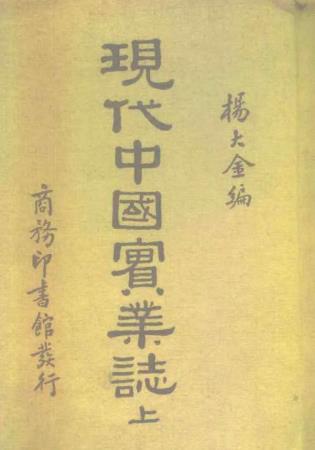 楊大金編
現代中國實業誌 上
商務印書館發行